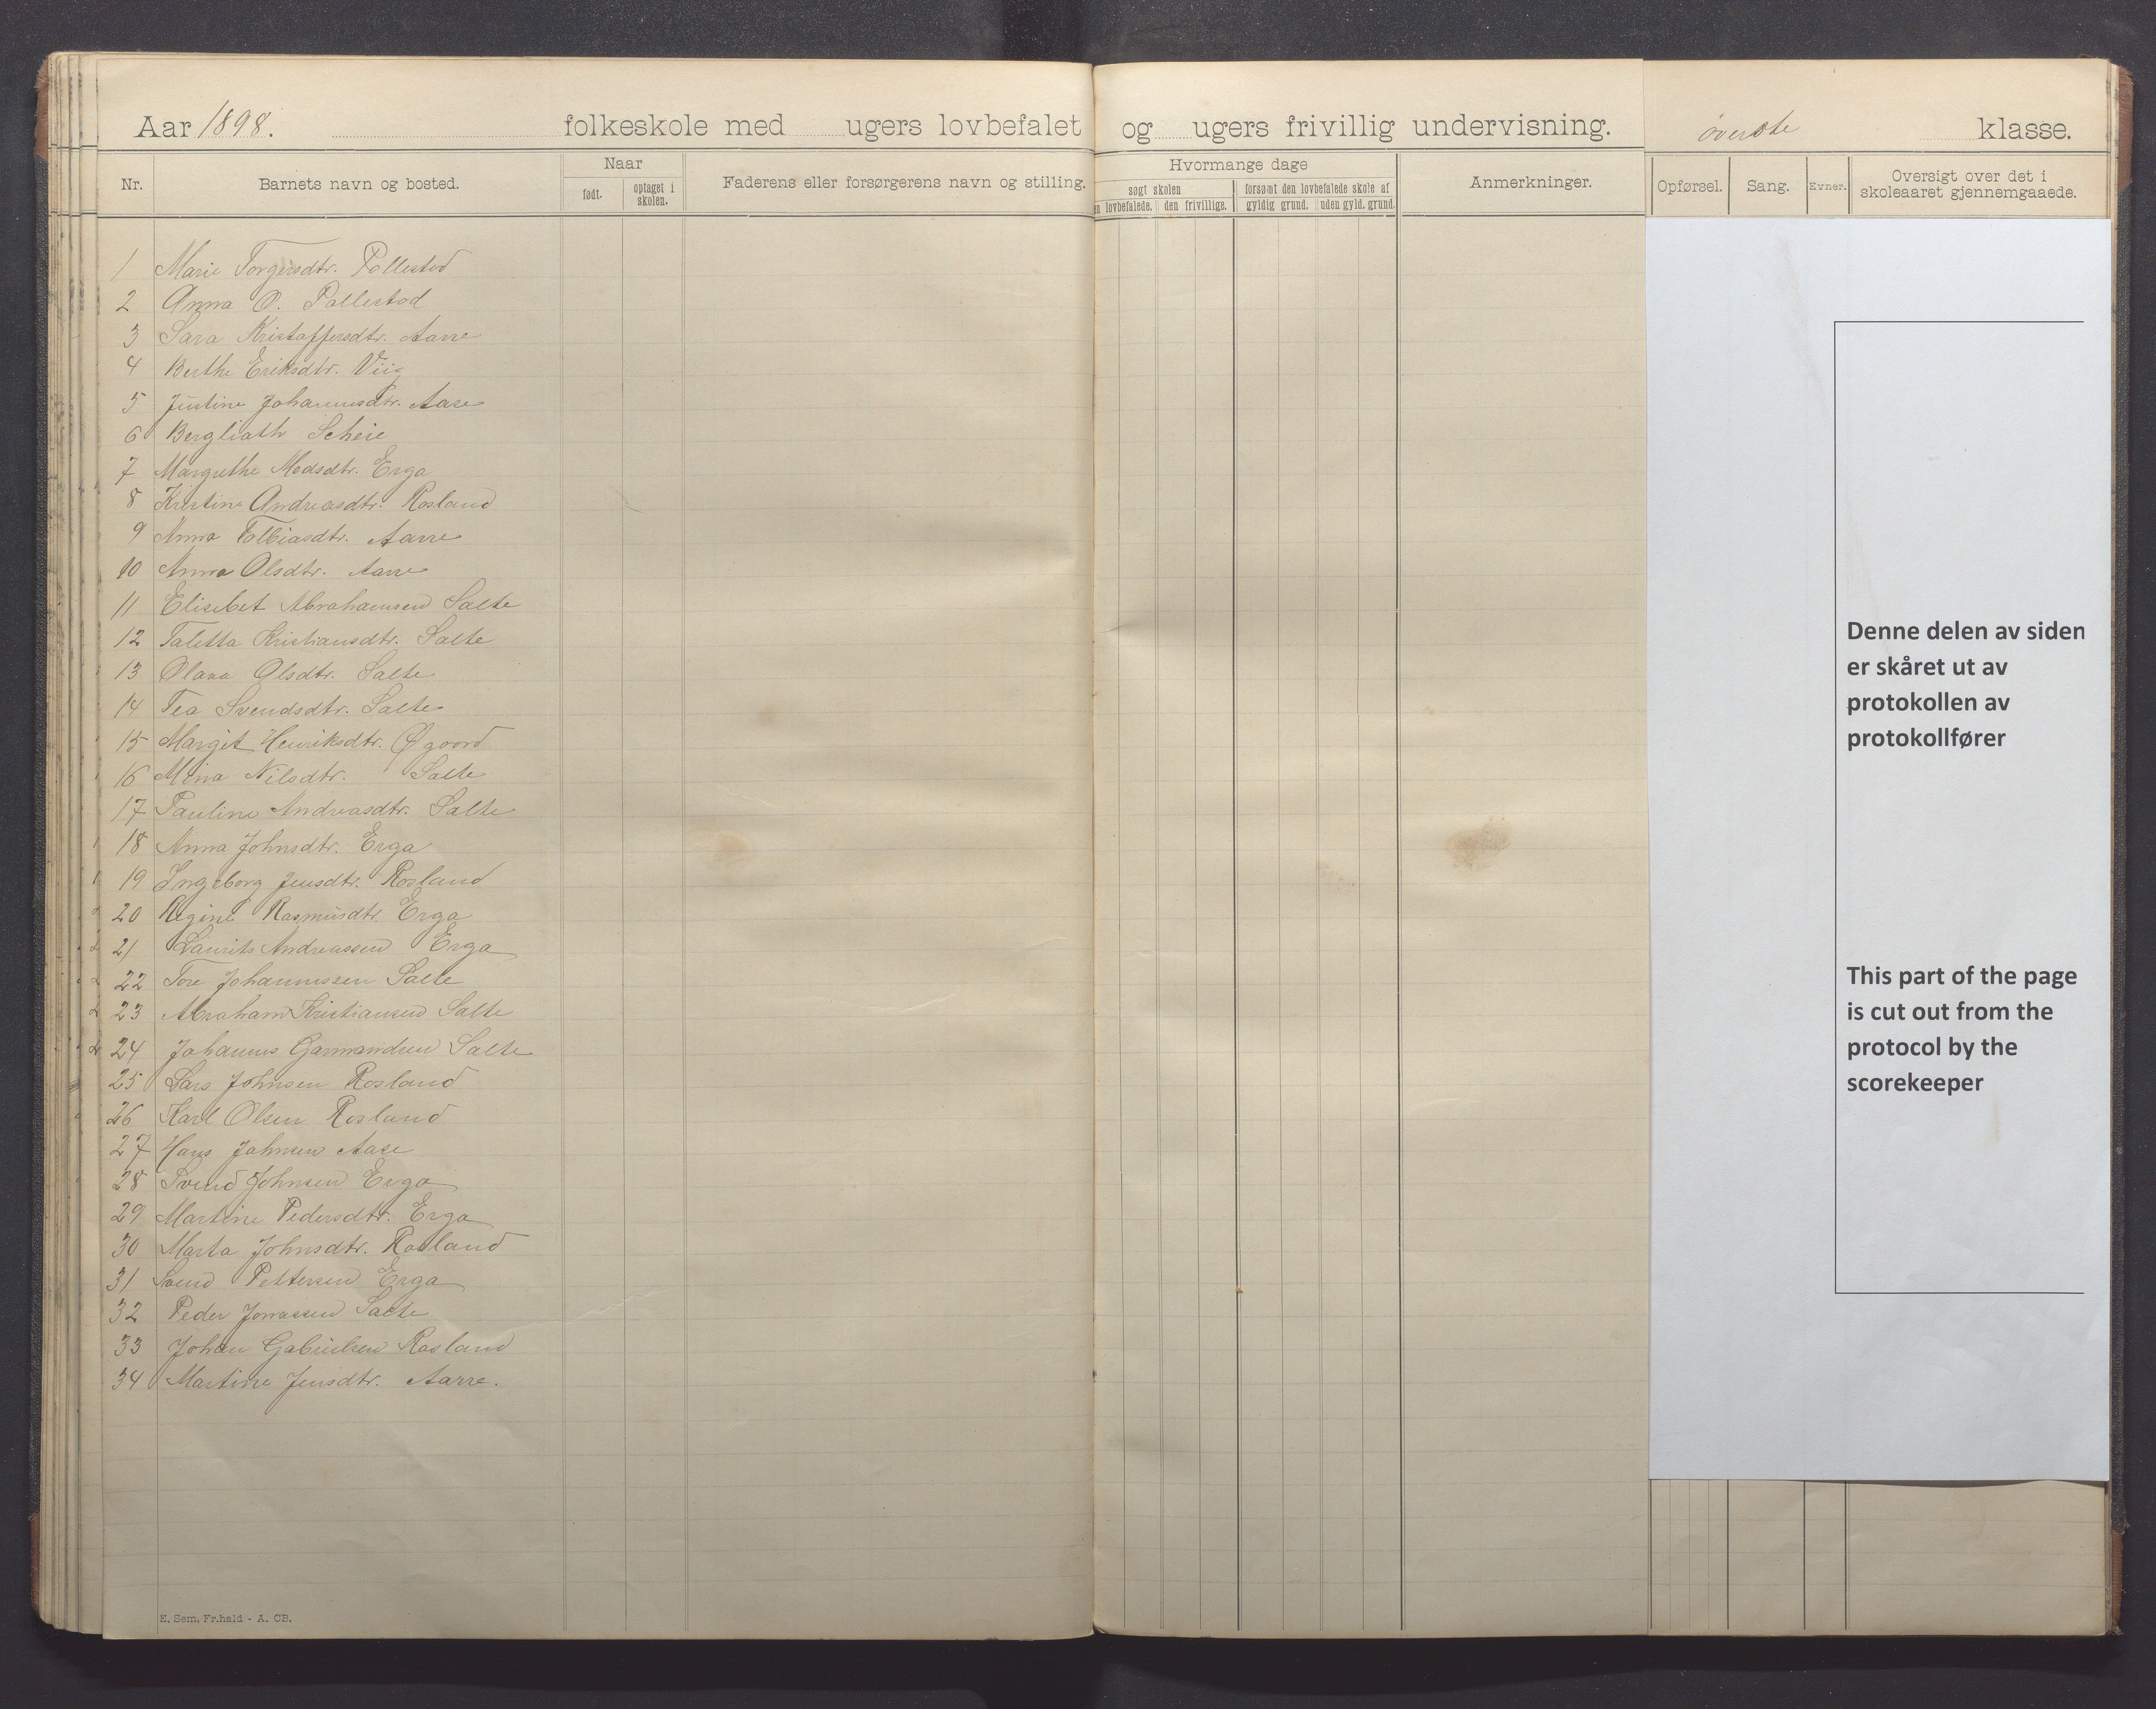 Aar 1898. folkeskole med ugers lovbefalet og ugers frivillig undervisning. øverste klasse.
Nr. Barnets navn og bosted. Naar født. optaget i skolen. Faderens eller forsørgerens navn og stilling. Hvormange dage søgt skolen en lovbefalede. den frivillige. forsømt den lovbefalede skole af gyldig grund. uden gyld. grund. Anmerkninger. Opførsel. Sang. Evner. Oversigt over det i skoleaaret gjennemgaaede.
1 Marie Torgersdtr. Pollestad
2 Anna O. Pollestad
3 Sara Kristoffersdtr. Aarre
4 Berthe Eriksdtr. Viig
5 Justine Johannesdtr. Aase
6 Bergliath Scheie
7 Margrethe Madsdtr. Erga
8 Kristine Andreasdtr. Rosland
9 Anna Tobiasdtr. Aarre
10 Anna Olsdtr. Aarre
11 Elisebet Abrahamsen Salte
12 Taletta Kristiansdtr. Salte
13 Olava Olsdtr. Salte
14 Tea Svendsdtr. Salte
15 Margit Henriksdtr. Øgaard
16 Mina Nilsdtr. Salte
17 Pauline Andreasdtr. Salte
18 Anna Johnsdtr. Erga
19 Ingeborg Jensdtr. Rosland
20 Regine Rasmusdtr. Erga
21 Laurits Andreassen Erga
22 Tore Johannessen Salte
23 Abraham Kristiansen Salte
24 Johannes Garmandsen Salte
25 Lars Johnsen Rosland
26 Karl Olsen Rosland
27 Hans Johnsen Aase
28 Svend Johnsen Erga
29 Martine Pedersdtr. Erga
30 Marta Johnsdtr. Rosland
31 Svend Pettersen Erga
32 Peder Jonassen Salte
33 Johan Gabrielsen Rosland
34 Martine Jensdtr. Aarre.
E. Sem, Fr.hald - A. CB.
Denne delen av siden
er skåret ut av
protokollen av
protokollfører
This part of the page
is cut out from the
protocol by the
scorekeeper